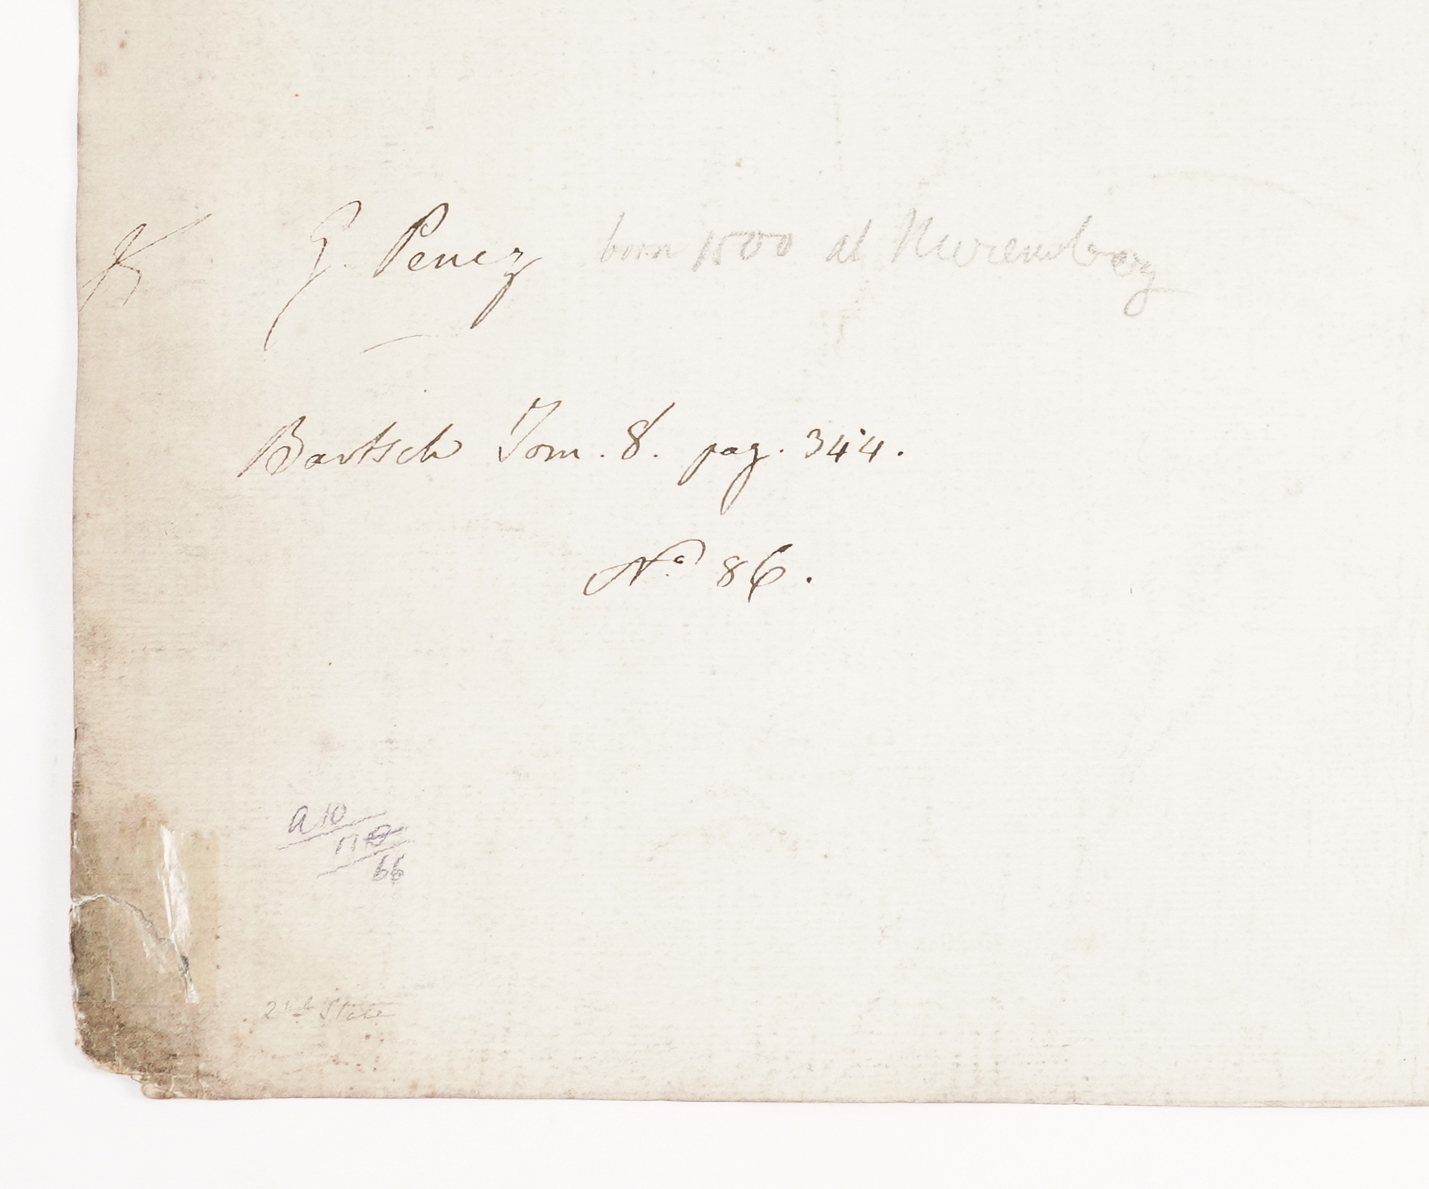 G. Pencz born 1500 at Nuremberg
Bartsch Tom. 8. pag. 344.
No. 86.
a 10
66
2nd State